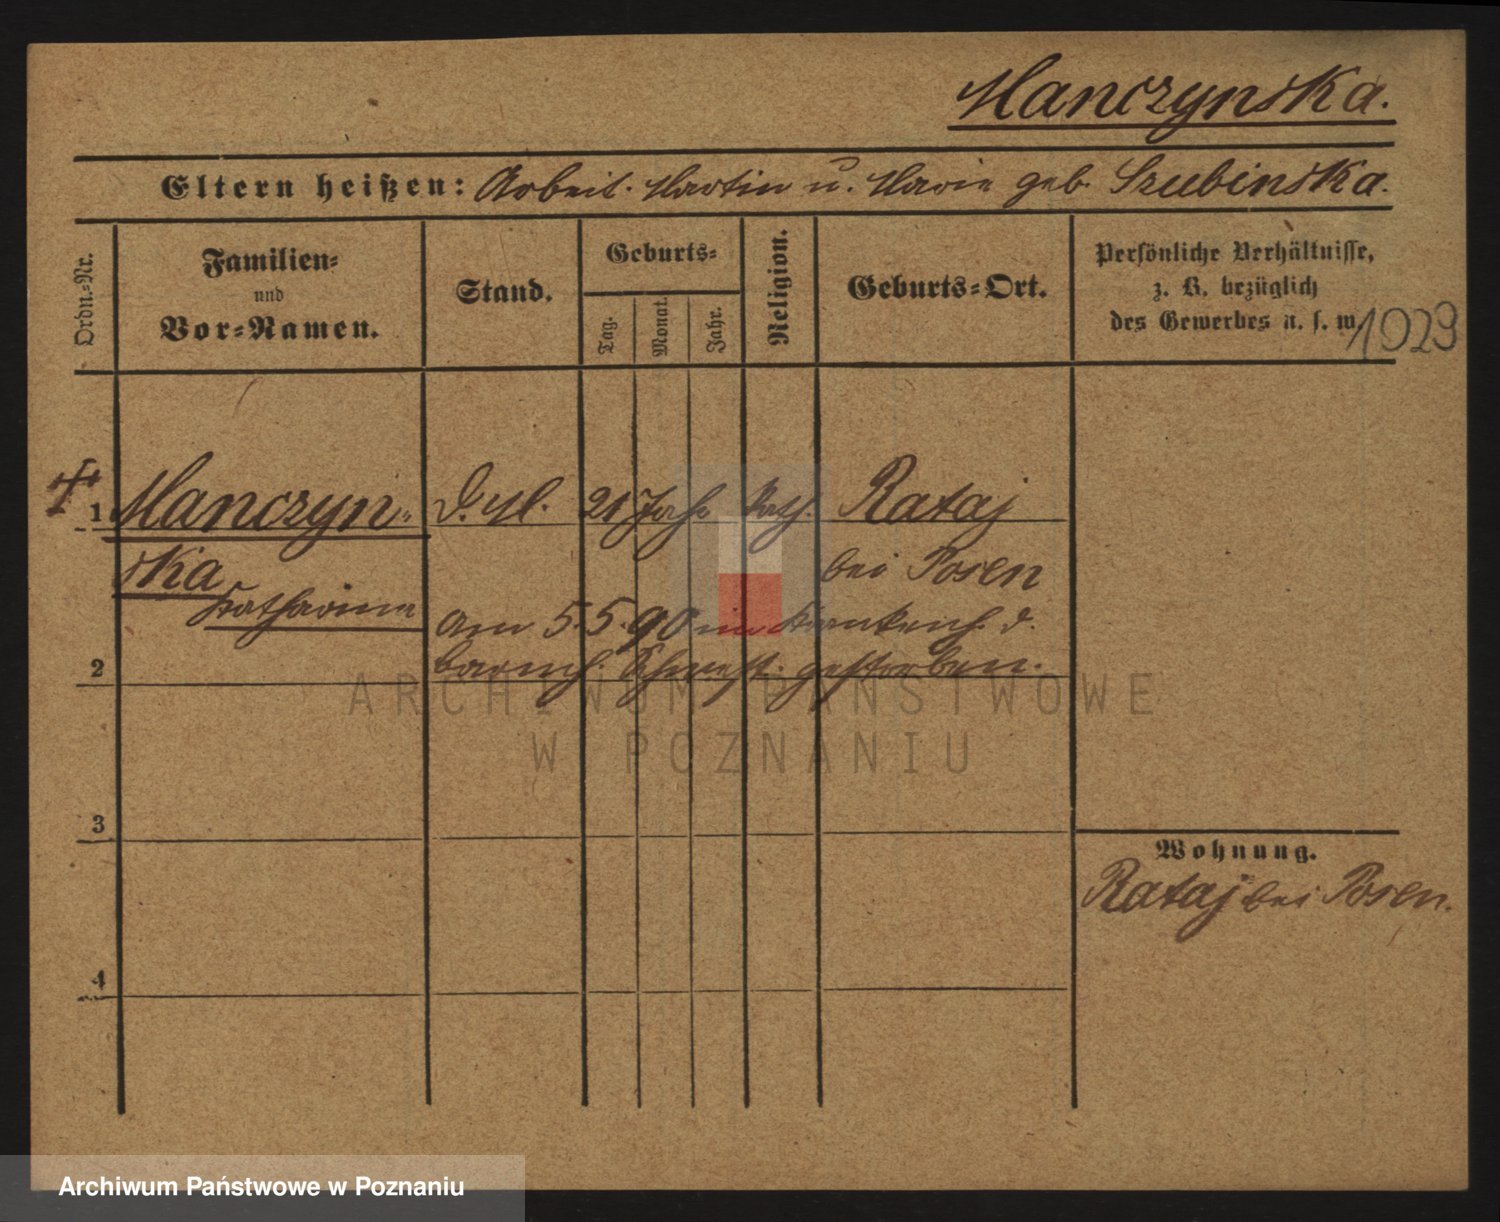 Manczynska.
Eltern heißen: Arbeit. Martin u. Marie geb. Szubinska.
Ordn.-Nr.
Familien-
und
Vor-Namen.
Stand.
Geburts-
Tag.
Monat.
Jahr.
Religion.
Geburts-Ort.
Persönliche Verhältnisse,
z. B. bezüglich
des Gewerbes u. s. w.
1929
1 Manczyn- D. M. 21 Jahr Kath. Rataj
ska bei Posen
Katharina
am 5.5.90 im Krankenh. d.
2 barmh. Schwest. gestorben.
3
4
Wohnung.
Rataj bei Posen.
ARCHIWUM PAŃSTWOWE
W POZNANIU
Archiwum Państwowe w Poznaniu